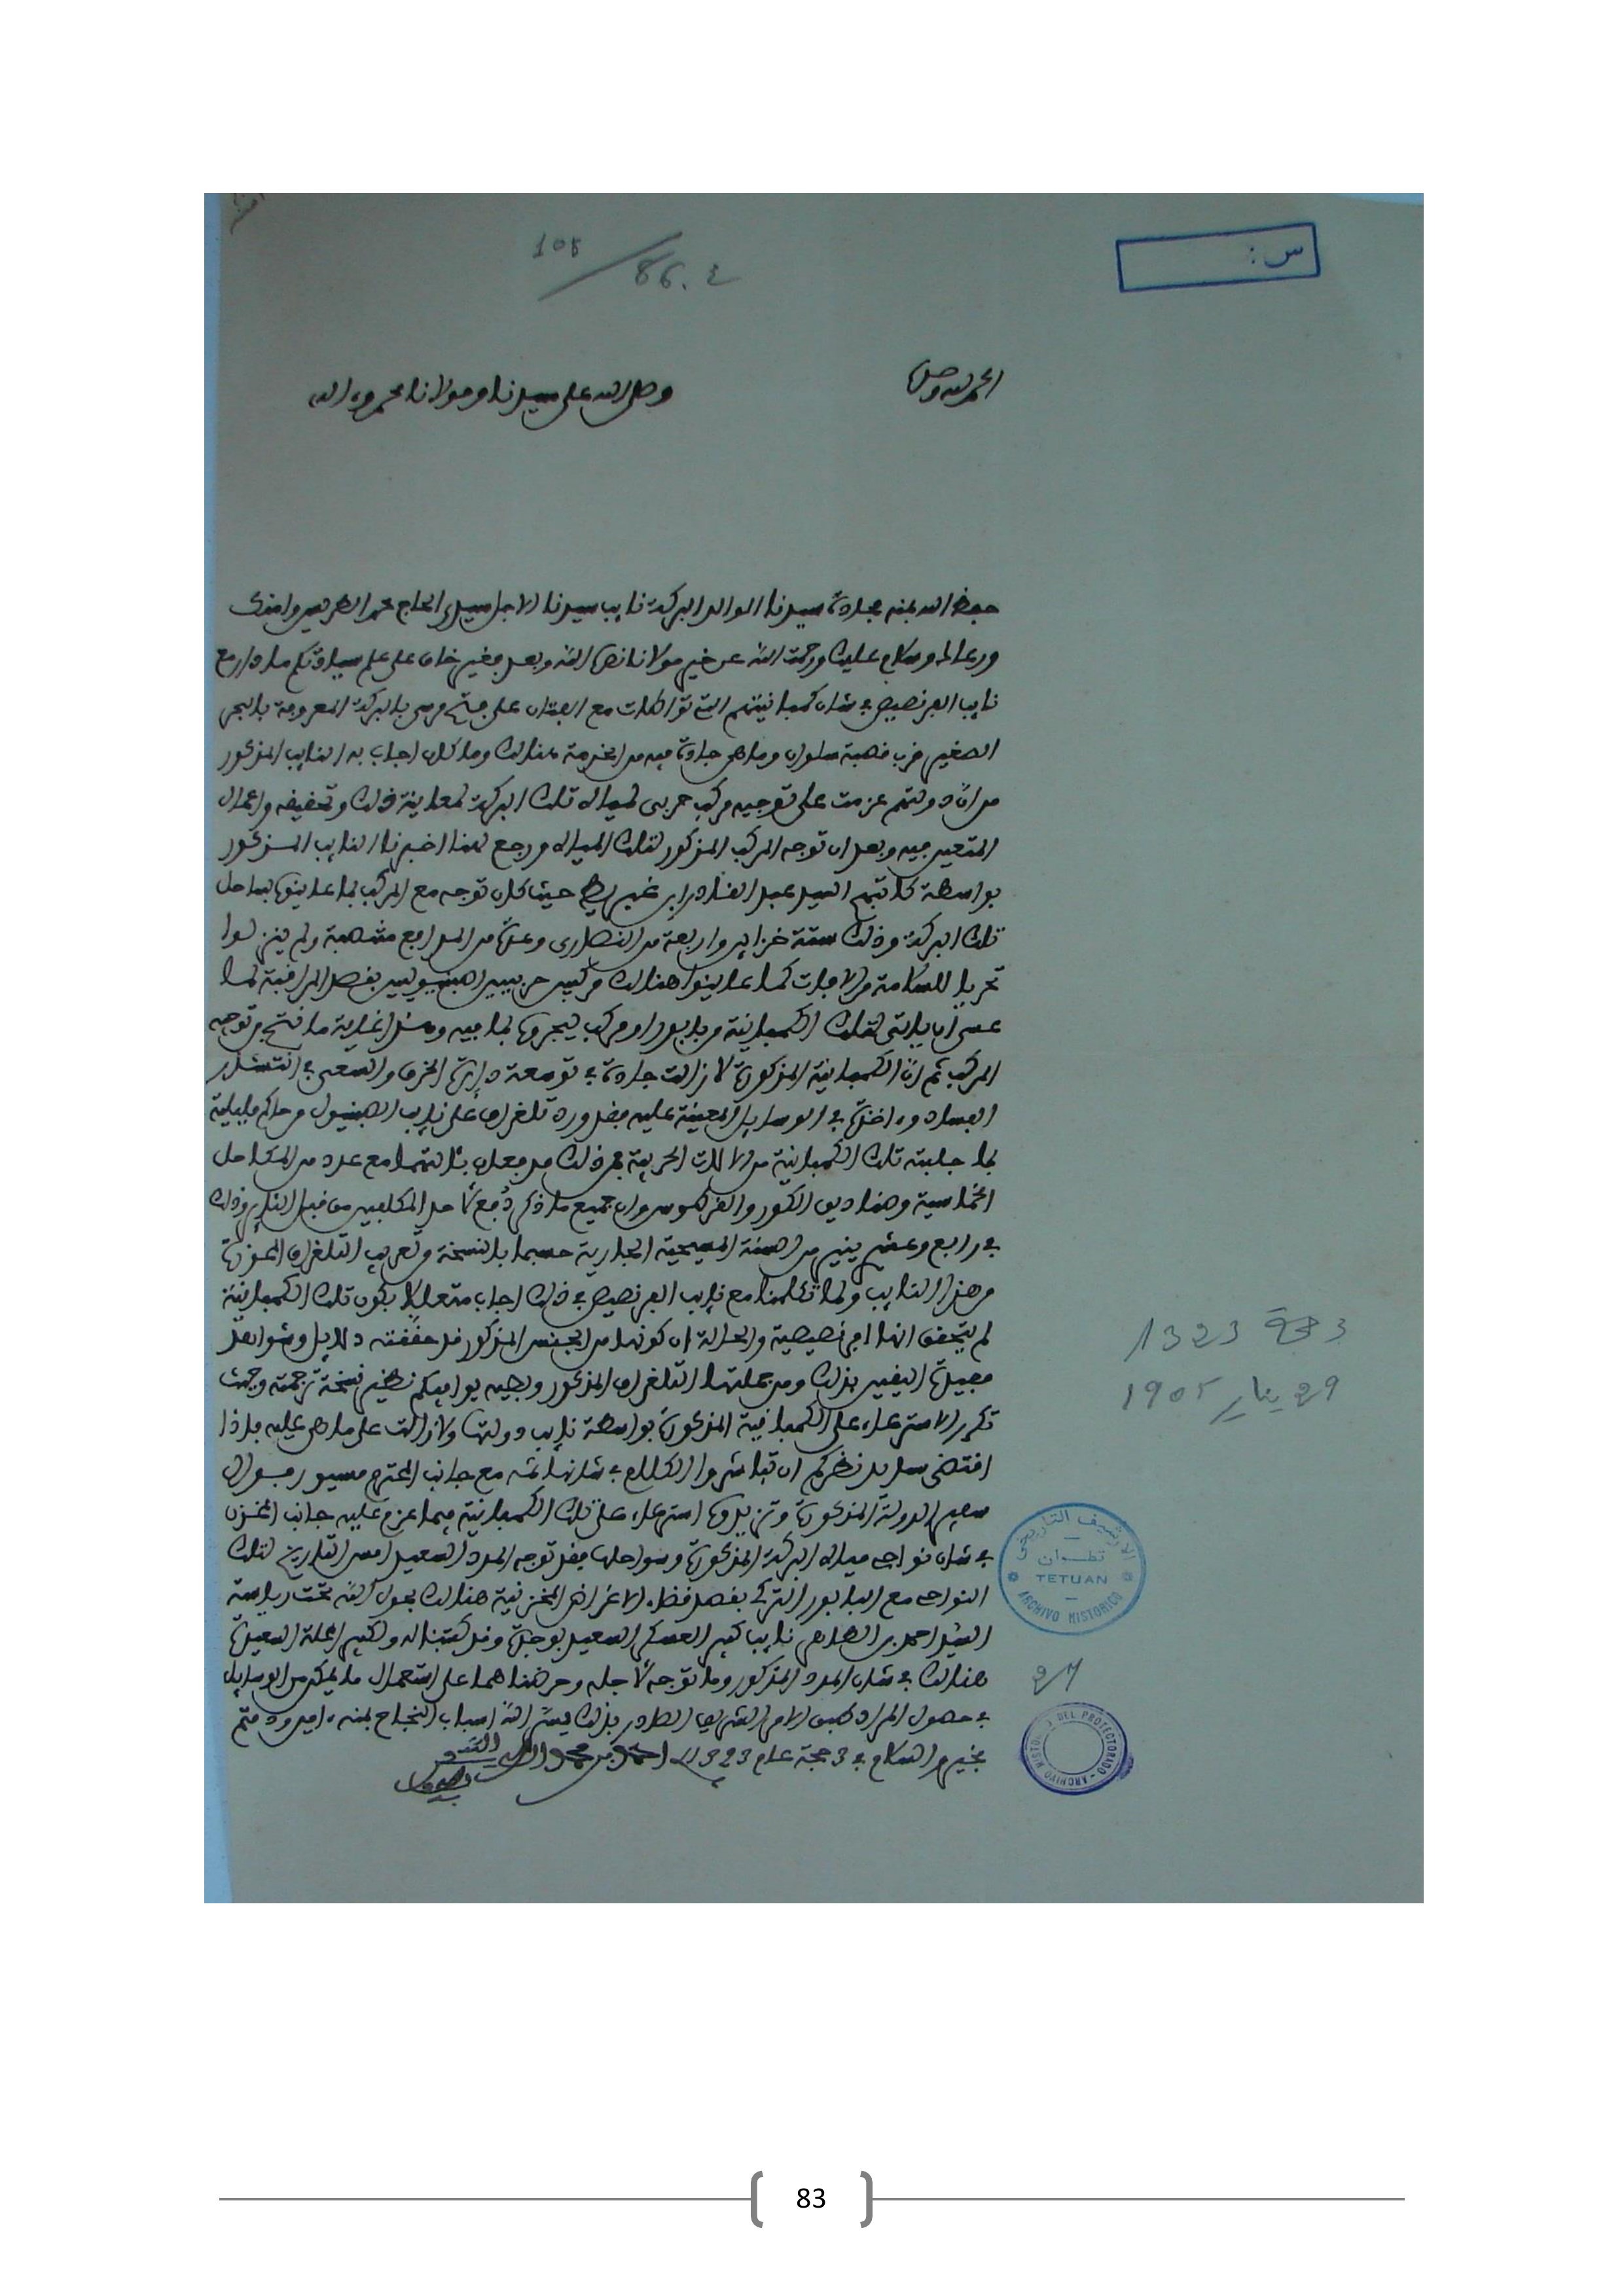 س:
108 / 86.ع
الحمد لله وحده
وصلى الله على سيدنا ومولانا محمد وآله
حفظ الله بمنه مجادة سيدنا الوالد البركة نايب سيدنا الاجل سيدي الحاج محمد الطريس وامنك
ورعاك وسلام عليك ورحمت الله عن خير مولانا نصره الله وبعد فغير خاف على علم سيادتكم ما دار مع
نايب الفرنصيص في شان كمبانيتهم التي تواطات مع الفتان على فتح مرسى بالبركة المعروفة بالبحر
الصغير قرب قصبة سلوان وما هي جادة فيه من الخدمة هنالك وما كان اجاب به النايب المذكور
من ان دولتهم عزمت على توجيه مركب حربي لمياه تلك البركة لمعاينة ذلك وتحقيقه واعمال
المتعين فيه وبعد ان توجه المركب المذكور لتلك المياه ورجع لهنا اخبرنا النايب المذكور
بواسطة كاتبهم السيد عبد القادر ابن غبريط حيث كان توجه مع المركب بما عاينوه بساحل
تلك البركة وذلك ستة خزاين واربعة من النصارى وعدة من المدافع مشهبة ولم ينزلوا
تحريا للسلامة من الافات كما عاينوا هنالك مركبين حربيين اصبنيوليين بقصد المراقبة لما
عسى أن ياتي لتلك الكمبانية من بابور او مركب ليحجزوه بما فيه وهذا غاية ما نتج من توجه
المركب ثم ان الكمبانية المذكورة لا زالت جادة في توسعة دايرة الخرق والسعي في انتشار
الفساد واخذة في الوسايل المعينة عليه فقد ورد تلغراف على نايب الصبنيول من حاكم مليلية
بما جلبته تلك الكمبانية من الالات الحربية فمن ذلك مدفعان بئالتهما مع عدد من المكاحل
الخماسية وصناديق الكور والقرطوس وان جميع ما ذكر دفع لاحد المكلفين من قبل الفتان وذلك
في رابع وعشرين ينير من السنة المسيحية الجارية حسبما بالنسخة وتعريب التلغراف المحوزة
من هذا النايب ولما تكلمنا مع نايب الفرنصيص في ذلك اجاب متعللا بكون تلك الكمبانية
لم يتحقق انها فرنصيصية والحالة ان كونها من الجنس المذكور قد حققته دلايل وشواهد
مفيدة اليقين بذلك ومن جملتها التلغراف المذكور وطيه يوافيكم نظير نسخة ترجمته وحيث
تكرر الاسترعاء على الكمبانية المذكورة بواسطة نايب دولتها ولا زالت على ما هي عليه فاذا
اقتضى سديد نظركم ان تباشروا الكلام في شانها ثمه مع جانب المحترم مسيو
سفير الدولة المذكورة وتزيدوا استرعاء على تلك الكمبانية فيما عزم عليه جانب المخزن
في شان نواحي مياه البركة المذكورة وسواحلها فقد توجه المدد السعيد امس التاريخ لتلك
النواحي مع البابور التركي بقصد قضاء الاغراض المخزنية هنالك بحول الله تحت رياسة
السيد احمد بن الطاهر نايب كبير العسكر السعيد بوجدة وقد كتبنا له ولكبير المحلة السعيدة
هنالك في شان المدد المذكور وما توجه لاجله وحرضناهما على استعمال ما يمكن من الوسايل
في حصول المراد طبق الامر الشريف الصادر بذلك يسر الله اسباب النجاح بمنه ءامين ودمتم
بخير والسلام في 3 حجة عام 1323 احمد بن محمد
3 حجة 1323
29 يناير 1905
الارشيف التاريخي
تطوان
TETUAN
ARCHIVO HISTORICO
27
ARCHIVO HISTO DEL PROTECTORADO
83